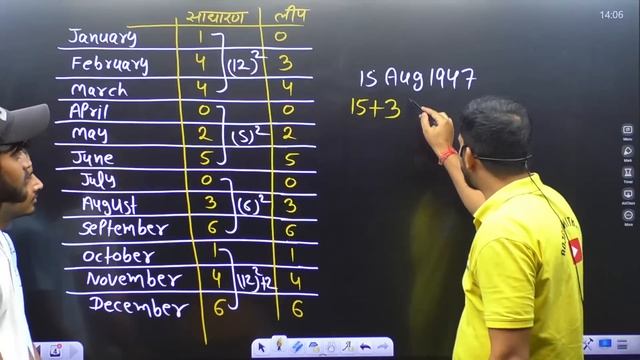 14:06
साधारण लीप
January 1 0
February 4 (12)² 3
March 4 4
April 0 0
May 2 (5)² 2
June 5 5
July 0 0
August 3 (6)² 3
September 6 6
October 1 1
November 4 (12)²+2 4
December 6 6
15 Aug 1947
15+3